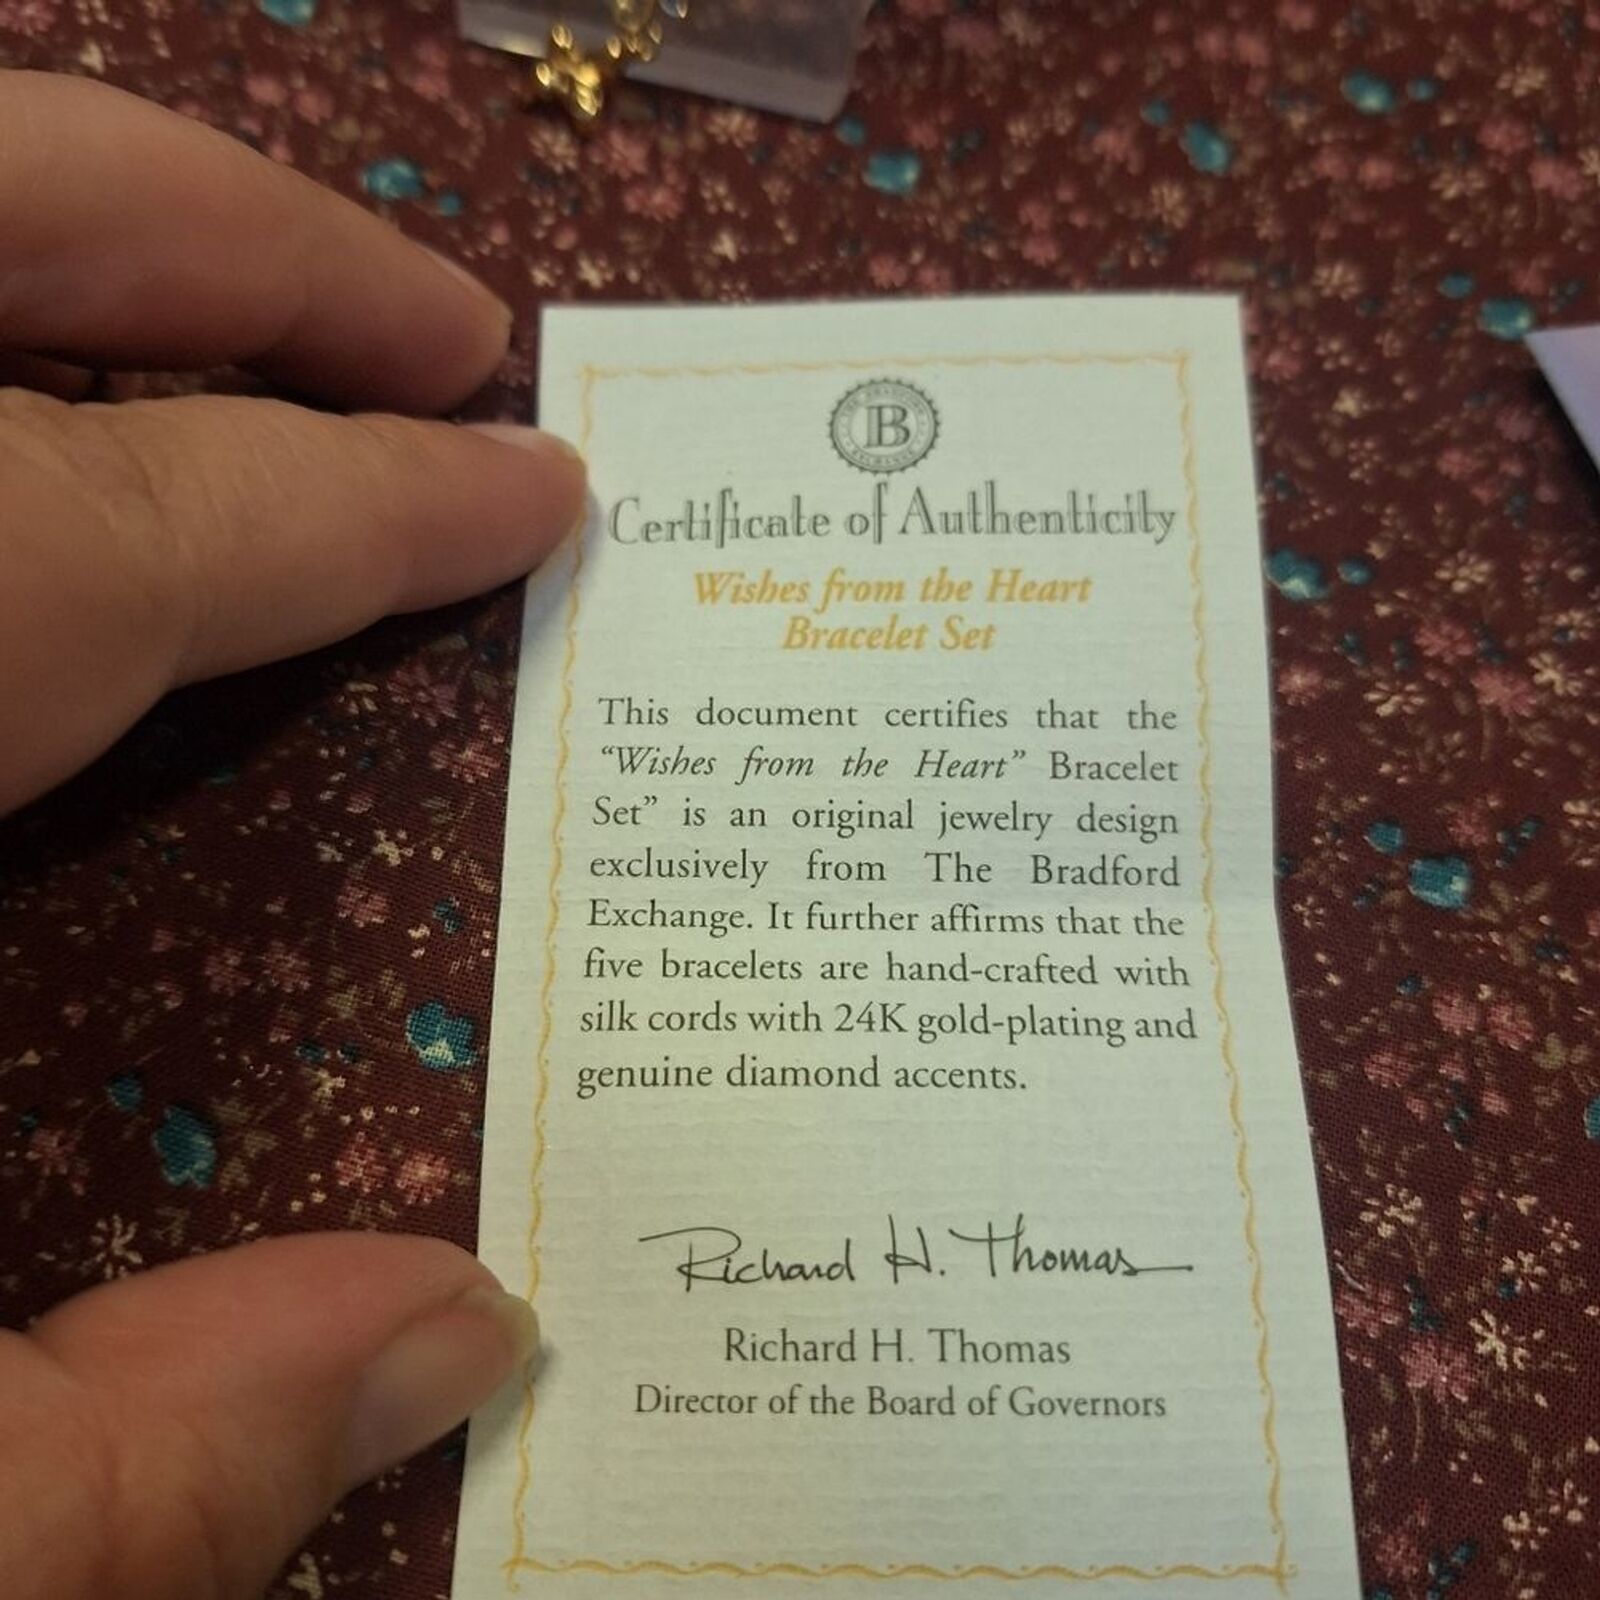 B
Certificate of Authenticity
Wishes from the Heart
Bracelet Set
This document certifies that the
“Wishes from the Heart” Bracelet
Set” is an original jewelry design
exclusively from The Bradford
Exchange. It further affirms that the
five bracelets are hand-crafted with
silk cords with 24K gold-plating and
genuine diamond accents.
Richard H. Thomas
Richard H. Thomas
Director of the Board of Governors